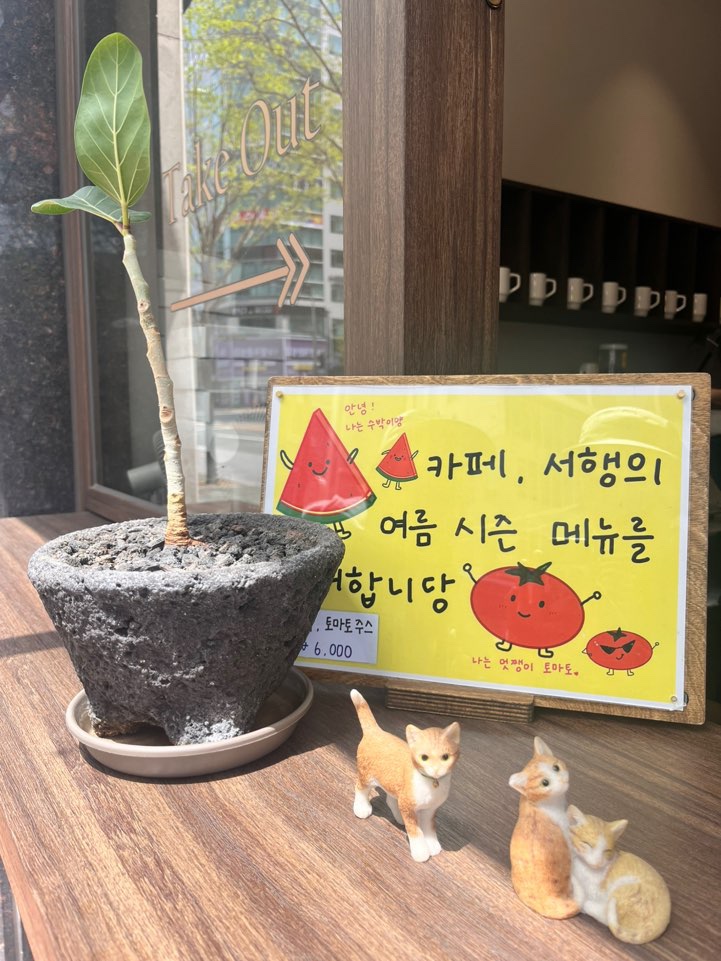 Take Out
안녕!
나는 수박이얌
카페, 서행의
여름 시즌 메뉴를
합니당
나는 멋쨍이 토마토
토마토주스
6,000